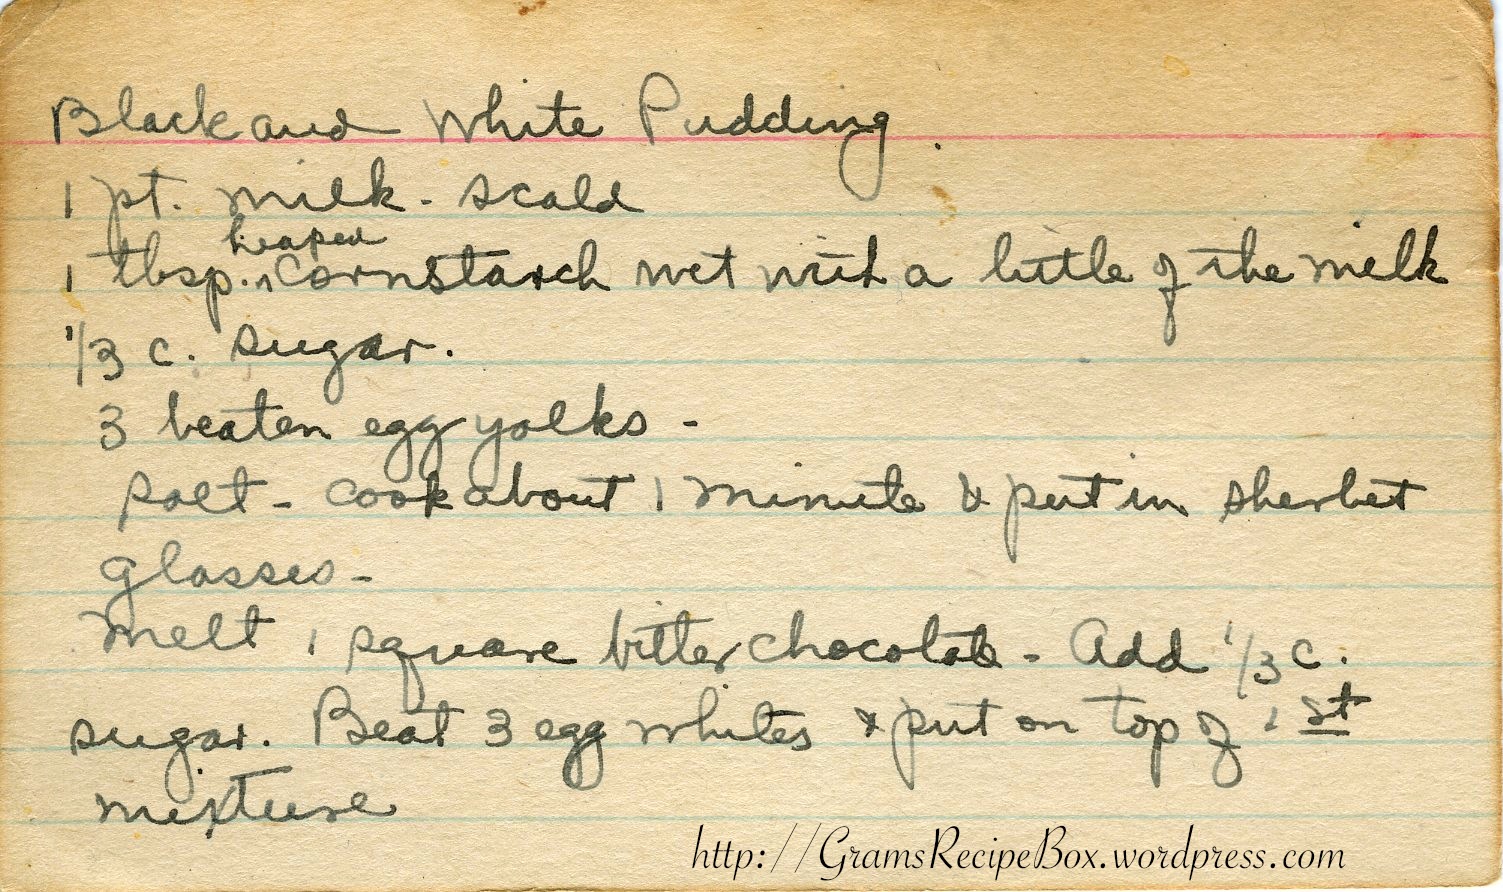 Black and White Pudding.
1 pt. milk - scald
heaped
1 tbsp. ^ Cornstarch wet with a little of the milk
1/3 c. sugar.
3 beaten egg yolks -
Salt - cook about 1 minute & put in sherbet
glasses -
Melt 1 square bitter chocolate - Add 1/3 c.
sugar. Beat 3 egg whites & put on top of 1st
mixture
http://GramsRecipeBox.wordpress.com